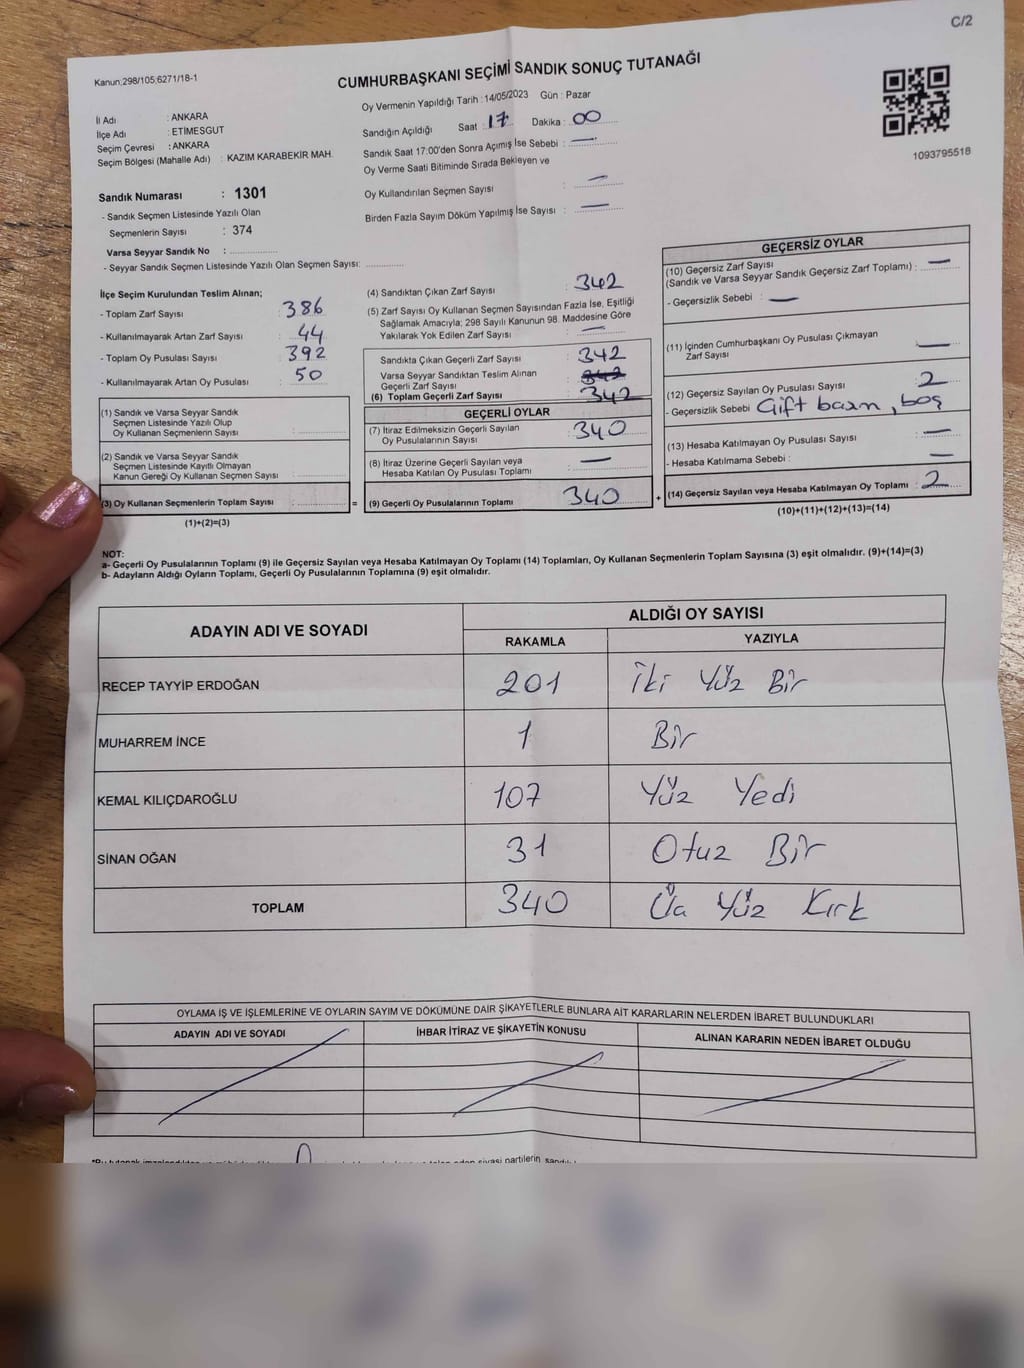 C/2
Kanun;298/105;6271/18-1
CUMHURBAŞKANI SEÇİMİ SANDIK SONUÇ TUTANAĞI
İl Adı : ANKARA
İlçe Adı : ETİMESGUT
Seçim Çevresi : ANKARA
Seçim Bölgesi (Mahalle Adı) : KAZIM KARABEKİR MAH.
Oy Vermenin Yapıldığı Tarih : 14/05/2023 Gün : Pazar
Sandığın Açıldığı Saat : 17 Dakika : 00
Sandık Saat 17:00'den Sonra Açımış İse Sebebi : —
Oy Verme Saati Bitiminde Sırada Bekleyen ve
Oy Kullandırılan Seçmen Sayısı : —
Birden Fazla Sayım Döküm Yapılmış İse Sayısı : —
1093795518
Sandık Numarası : 1301
- Sandık Seçmen Listesinde Yazılı Olan
Seçmenlerin Sayısı : 374
Varsa Seyyar Sandık No :
- Seyyar Sandık Seçmen Listesinde Yazılı Olan Seçmen Sayısı:
İlçe Seçim Kurulundan Teslim Alınan;
- Toplam Zarf Sayısı : 386
- Kullanılmayarak Artan Zarf Sayısı : 44
- Toplam Oy Pusulası Sayısı : 392
- Kullanılmayarak Artan Oy Pusulası : 50
(1) Sandık ve Varsa Seyyar Sandık
Seçmen Listesinde Yazılı Olup
Oy Kullanan Seçmenlerin Sayısı :
(2) Sandık ve Varsa Seyyar Sandık
Seçmen Listesinde Kayıtlı Olmayan
Kanun Gereği Oy Kullanan Seçmen Sayısı :
(3) Oy Kullanan Seçmenlerin Toplam Sayısı : =
(1)+(2)=(3)
(4) Sandıktan Çıkan Zarf Sayısı : 342
(5) Zarf Sayısı Oy Kullanan Seçmen Sayısından Fazla İse, Eşitliği
Sağlamak Amacıyla; 298 Sayılı Kanunun 98. Maddesine Göre
Yakılarak Yok Edilen Zarf Sayısı : —
Sandıkta Çıkan Geçerli Zarf Sayısı : 342
Varsa Seyyar Sandıktan Teslim Alınan
Geçerli Zarf Sayısı :
(6) Toplam Geçerli Zarf Sayısı : 342
GEÇERLİ OYLAR
(7) İtiraz Edilmeksizin Geçerli Sayılan
Oy Pusulalarının Sayısı : 340
(8) İtiraz Üzerine Geçerli Sayılan veya
Hesaba Katılan Oy Pusulası Toplamı : —
(9) Geçerli Oy Pusulalarının Toplamı : 340 +
GEÇERSİZ OYLAR
(10) Geçersiz Zarf Sayısı
(Sandık ve Varsa Seyyar Sandık Geçersiz Zarf Toplamı) : —
- Geçersizlik Sebebi : —
(11) İçinden Cumhurbaşkanı Oy Pusulası Çıkmayan
Zarf Sayısı : —
(12) Geçersiz Sayılan Oy Pusulası Sayısı : 2
- Geçersizlik Sebebi : Çift basın, boş
(13) Hesaba Katılmayan Oy Pusulası Sayısı : —
- Hesaba Katılmama Sebebi : —
(14) Geçersiz Sayılan veya Hesaba Katılmayan Oy Toplamı : 2
(10)+(11)+(12)+(13)=(14)
NOT:
a- Geçerli Oy Pusulalarının Toplamı (9) ile Geçersiz Sayılan veya Hesaba Katılmayan Oy Toplamı (14) Toplamları, Oy Kullanan Seçmenlerin Toplam Sayısına (3) eşit olmalıdır. (9)+(14)=(3)
b- Adayların Aldığı Oyların Toplamı, Geçerli Oy Pusulalarının Toplamına (9) eşit olmalıdır.
ADAYIN ADI VE SOYADI ALDIĞI OY SAYISI
RAKAMLA YAZIYLA
RECEP TAYYİP ERDOĞAN 201 İki Yüz Bir
MUHARREM İNCE 1 Bir
KEMAL KILIÇDAROĞLU 107 Yüz Yedi
SİNAN OĞAN 31 Otuz Bir
TOPLAM 340 Üç Yüz Kırk
OYLAMA İŞ VE İŞLEMLERİNE VE OYLARIN SAYIM VE DÖKÜMÜNE DAİR ŞİKAYETLERLE BUNLARA AİT KARARLARIN NELERDEN İBARET BULUNDUKLARI
ADAYIN ADI VE SOYADI İHBAR İTİRAZ VE ŞİKAYETİN KONUSU ALINAN KARARIN NEDEN İBARET OLDUĞU